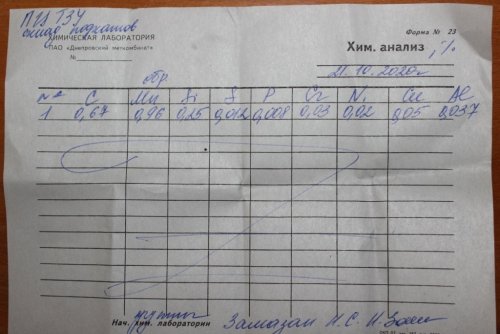 Форма № 23
ХИМИЧЕСКАЯ ЛАБОРАТОРИЯ
ПАО «Днепровский меткомбинат»
№
Хим. анализ, %
21.10.2020г
обр
№ C Mn Si S P Cr Ni Cu Al
1 0,67 0,96 0,25 0,012 0,008 0,03 0,02 0,05 0,037
Нач. хим. лаборатории